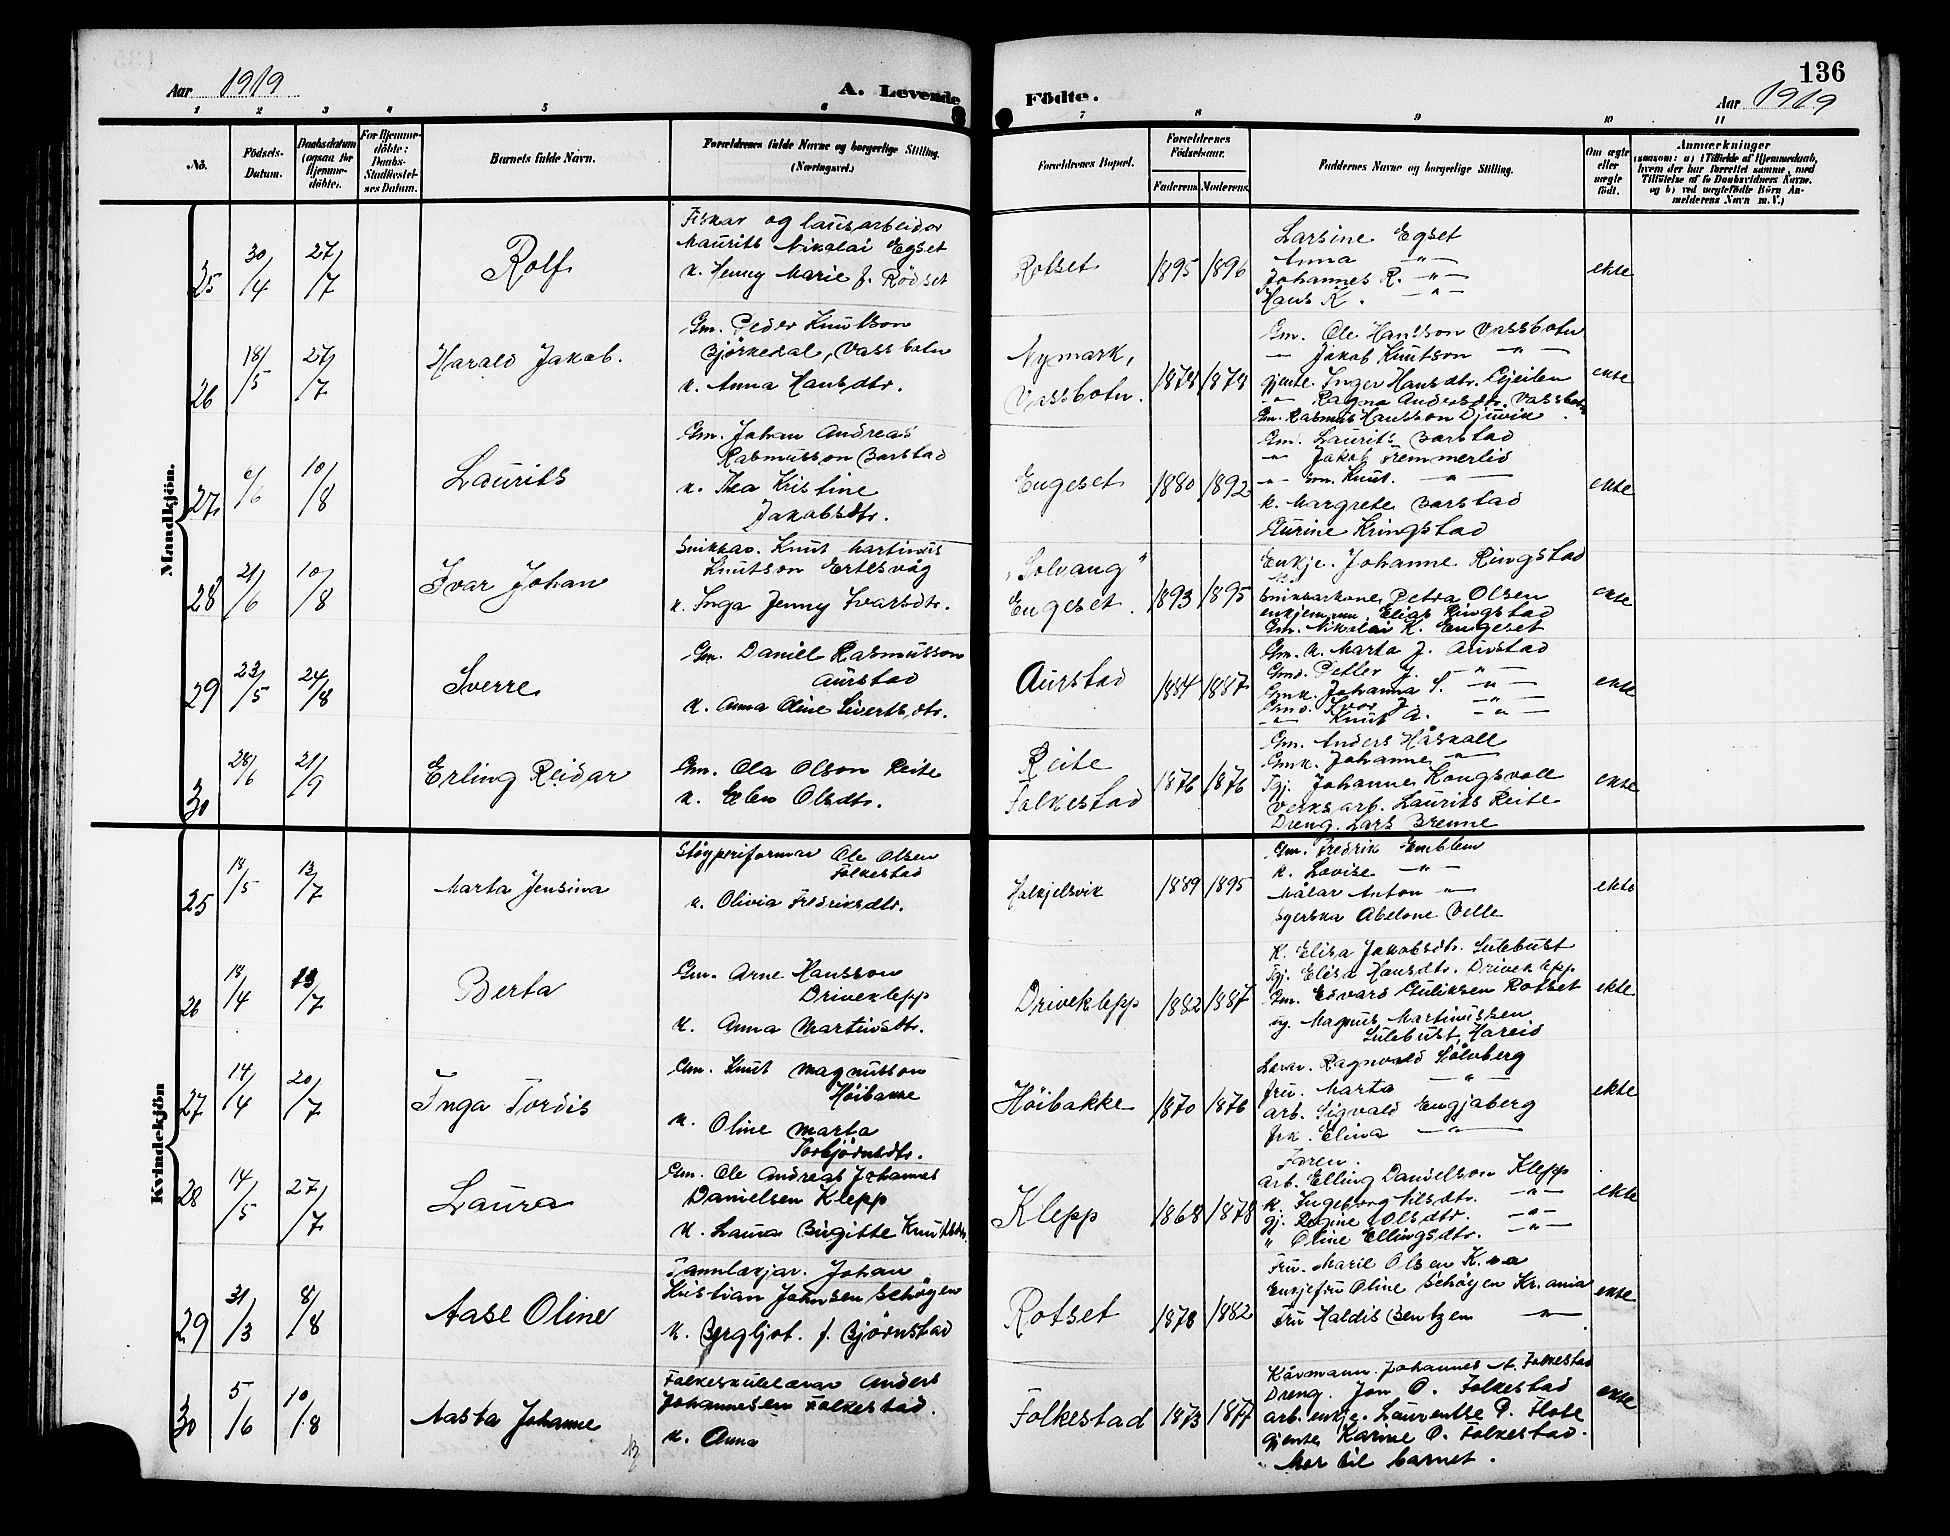 Aar 1919
A. Levende
Födte.
136
Aar 1919
1 2 3 4 5 6 7 8 9 10 11
No.
Födsels-Datum.
Daabsdatum (ogsaa for Hjemmedöbte).
For Hjemmedöbte: Daabs-Stadfæstelses Datum.
Barnets fulde Navn.
Forældrenes fulde Navne og borgerlige Stilling.
(Næringsvei.)
Forældrenes Bopæl.
Forældrenes Födselsaar.
Faderens. Moderens.
Faddernes Navne og borgerlige Stilling.
Om ægte eller uægte født.
Anmærkninger
(saasom: a) i Tilfælde af Hjemmedaab,
hvem der har forrettet samme, med
Tilföielse af to Daabsvidners Navne,
og b) ved uægtefödte Börn Anmelderens Navn m. V.)
Mandkjön.
25 30/4 27/7 Rolf
Fiskar og lausarbeidar
Maurits Nikolai Egset
k. Henny Marie f. Rödset
Rotset 1895 1896
Larsine Egset
Anna -"-
Johannes R. -"-
Hans K. -"-
ekte
26 18/5 27/7 Harald Jakob.
Gm. Peder Knutson
Björkedal, Vassbotn
k. Anna Hansdtr.
Nymark,
Vassbotn. 1878 1878
Gm. Ole Hansson Vassbotn
— Jakob Knutson -"-
gjente. Inger Hansdtr.
-"- Ragna Andersdtr. Vassbotn
Gm. Rasmus Hansson Djuvik
ekte
27 /6 10/8 Laurits
Gm. Johan Andreas
Rasmusson Barstad
k. Thea Kristine
Jakobsdtr.
Engeset 1880 1892
Gm. Laurits Barstad
-"- Jakob Tremmerlid
-"- Gm. Knut. -"-
k. Margrete Barstad
Gurine Kringstad
ekte
28 21/6 10/8 Ivar Johan
Snikkar. Knut Martinus
Knutson Ertesvåg
k. Inga Jenny Ivarsdtr.
"Solvang"
Engeset. 1893 1895
Enkje. Johanne Ringstad
Snikkarkone Petra Olsen
enkjemann Elias Ringstad
Gm. Nikolai K. Engeset
ekte
29 23/5 24/8 Sverre
Gm. Daniel Rasmusson
Aurstad
k. Anna Oline Sivertsdtr.
Aurstad 1884 1887
Gm. k. Marta J. Aurstad
Gmd. Petter J. -"-
Gmk. Johanna S. -"-
Gmd. Ivar J. -"-
-"- Knut A. -"-
ekte
30 28/6 21/9 Erling Reidar
Gm. Ola Olson Reite
k. Elen Olsdtr.
Reite
Folkestad 1876 1876
Gm. Anders Håskoll
Gmk. Johanne -"-
Tgj. Johanne Kongsvoll
Verksarb. Laurits Reite
Dreng. Lars Brenne
ekte
Kvindekjön
25 18/5 13/7 Marta Jensina
Stöyperiformar Ole Olsen
Folkestad
k. Olivia Fredriksdtr.
Halkjelsvik 1889 1895
Gm. Fredrik Emblem
k. Lovise -"-
Målar Anton -"-
Syerska Abelone Velle
ekte
26 18/4 13/7 Berta
Gm. Arne Hansson
Driveklepp
k. Anna Martinsdtr.
Driveklepp 1882 1887
K. Elisa Jakobsdtr. Sulebust
Tgj. Elisa Hansdtr. Driveklepp
Gm. Edvard Guliksen Rotset
ug. Magnus Martinussen
Sulebust, Hareid
ekte
27 14/4 20/7 Inga Tordis
Gm. Knut Magnusson
Höibakke
k. Oline Marta
Torbjörnsdtr.
Höibakke 1870 1876
Lærar. Ragnvald Sölvberg
fru. Marta -"-
arb. Sigvald Engjaberg
frk. Elina -"-
Faren.
ekte
28 14/5 27/7 Laura
Gm. Ole Andreas Johannes
Danielsen Klepp
k. Laura Birgitte Knutsdtr.
Klepp 1868 1878
arb. Elling Danielson Klepp
k. Ingeborg Nilsdtr. -"-
gj. Regine Olsdtr. -"-
" Oline Ellingsdtr. -"-
ekte
29 31/3 8/8 Aase Oline
Tannlækjar. Johan
Kristian Johnsen Schöyen
k. Bergljot. f. Björnstad
Rotset 1878 1882
Fru. Marie Olsen K.na
Enkjefru Oline Schöyen Kr.ania
Fru Haldis Bentzen -"-
ekte
30 5/6 10/8 Aasta Johanne
Folkeskulelærar Anders
Johannesen Folkestad.
k. Anna
Folkestad 1873 1877
Kårmann. Johannes A. Folkestad
Dreng. Jon O. Folkestad
arb. enkje. Laurentse P. Flote
gjente Karine O. Folkestad.
Mor til barnet.
ekte